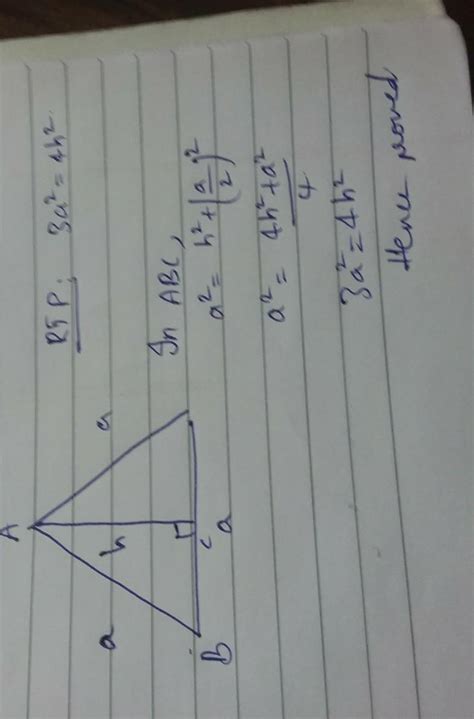 RTP: 3a² = 4h²
In ABC,
a² = h² + (a/2)²
a² = 4h² + a² / 4
3a² = 4h²
Hence proved
A
a
a
h
B
C
a